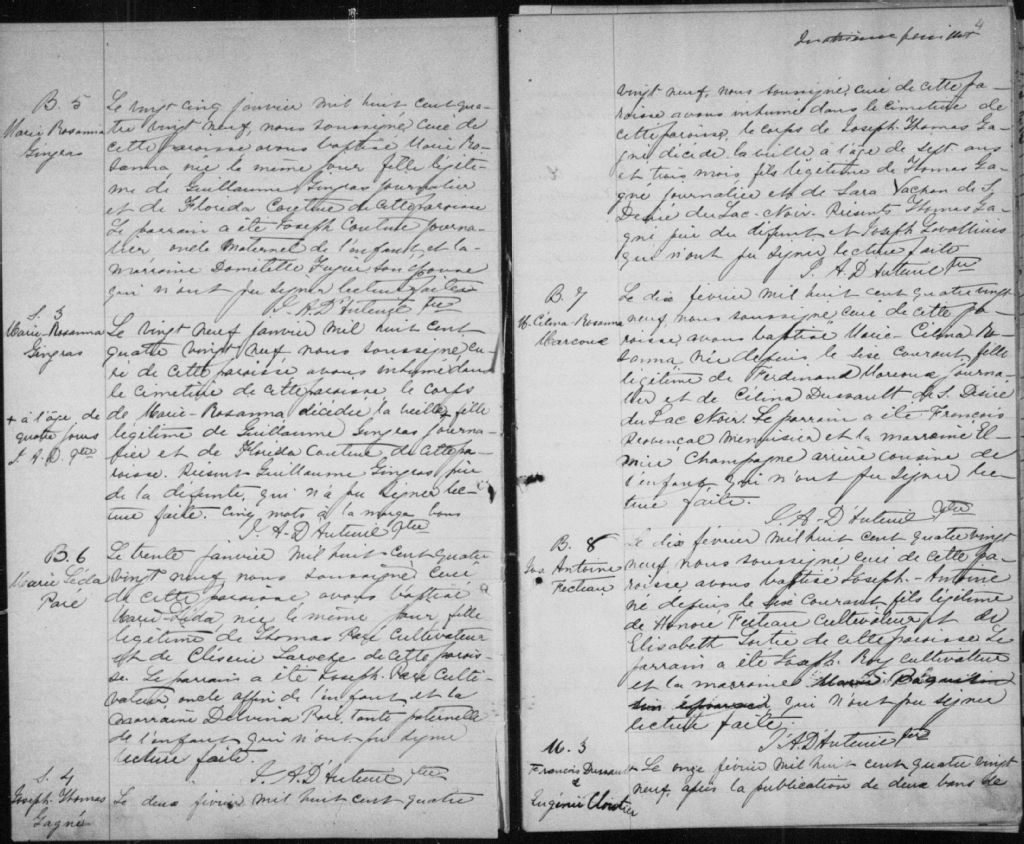 B. 5
Marie Rosanna
Gingras
Le vingt cinq janvier mil huit cent qua-
tre vingt neuf, nous soussigné, curé de
cette paroisse avons baptisé Marie Ro-
sanna née le même jour fille légiti-
me de Guillaume Gingras journalier
et de Florida Couture de cette paroisse
Le parrain a été Joseph Couture journa-
lier, oncle maternel de l'enfant, et la
marraine Domitille son épouse
qui n'ont pu signer lecture faite
J. A. D'Auteuil Ptre
S. 3
Marie-Rosanna
Gingras
+ à l'âge de
quatre jours
J. A. D. Ptre
Le vingt neuf janvier mil huit cent
quatre vingt neuf, nous soussigné, cu-
ré de cette paroisse avons inhumé dans
le cimetière de cette paroisse le corps
de Marie-Rosanna décédée la veille + fille
légitime de Guillaume Gingras journa-
lier et de Florida Couture, de cette pa-
roisse. Présent Guillaume Gingras père
de la défunte, qui n'a pu signer lec-
ture faite. Cinq mots à la marge bons
J. A. D'Auteuil Ptre
B. 6
Marie Léda
Paré
Le trente janvier mil huit cent quatre
vingt neuf nous soussigné, curé
de cette paroisse avons baptisé
Marie-Léda, née le même jour, fille
légitime de Thomas Paré cultivateur
et de de cette parois-
se. Le parrain a été Joseph Paré culti-
vateur, oncle de l'enfant et la
marraine Delvina Paré, tante paternelle
de l'enfant qui n'ont pu signer
lecture faite.
J. A. D'Auteuil Ptre
S. 4
Joseph Thomas
Gagné
Le deux février mil huit cent quatre
4
feuillet
vingt neuf, nous soussigné, curé de cette pa-
roisse avons inhumé dans le cimetière de
cette paroisse, le corps de Joseph Thomas Ga-
gné décédé la veille à l'âge de sept ans
et trois mois fils légitime de Thomas Ga-
gné journalier et de Sara Vachon de S.
Désiré du Lac-Noir. Présents Thomas Ga-
gné père du défunt et Joseph
qui n'ont pu signer lecture faite
J. A. D'Auteuil Ptre
B. 7
M. Célina Rosanna
Marcoux
Le dix février mil huit cent quatre vingt
neuf, nous soussigné curé de cette pa-
roisse avons baptisé Marie Célina Ro-
sanna née depuis le six courant fille
légitime de Ferdinand Marcoux journa-
lier et de Célina Dussault de S. Désiré
du Lac Noir. Le parrain a été François
Provençal menuisier et la marraine El-
mire Champagne arrière cousine de
l'enfant qui n'ont pu signer lec-
ture faite.
J. A. D'Auteuil Ptre
B. 8
Jos. Antoine
Fecteau
Le dix février mil huit cent quatre vingt
neuf, nous soussigné curé de cette pa-
roisse avons baptisé Joseph-Antoine
né depuis le six courant fils légitime
de Honoré Fecteau cultivateur et de
Elisabeth de cette paroisse Le
parrain a été Joseph Roy cultivateur
et la marraine Marie
qui n'ont pu signer
lecture faite.
J. A. D'Auteuil Ptre
M. 3
François Dussault
&
Eugénie Cloutier
Le onze février mil huit cent quatre vingt
neuf, après la publication de deux bans de